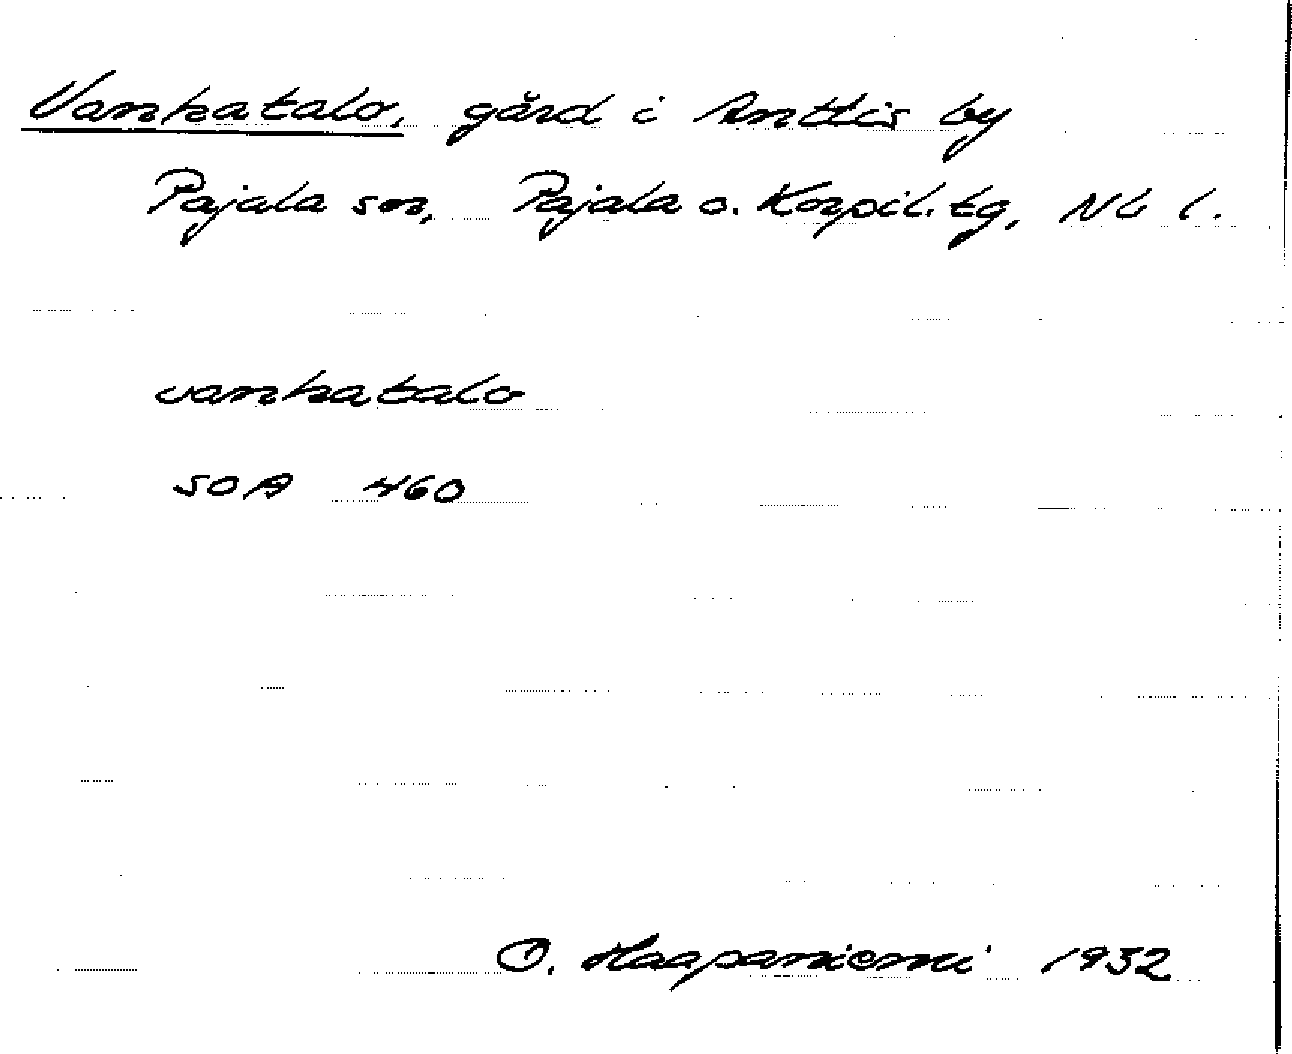 Vanhatalo, gård i Anttis by
Pajala sn, Pajala o. Korpil. tg, Nb l.
vanhatalo
SOA 460
O. Haapaniemi 1932